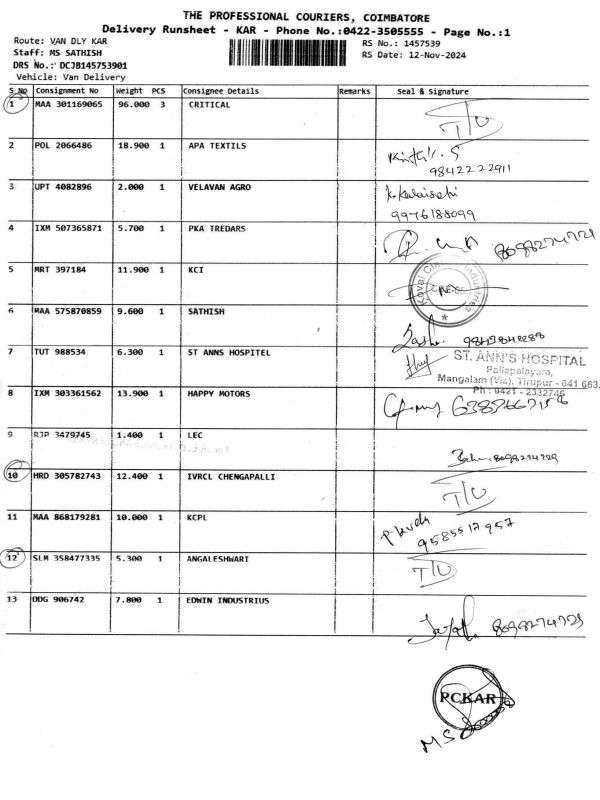 THE PROFESSIONAL COURIERS, COIMBATORE
Delivery Runsheet - KAR - Phone No.:0422-3505555 - Page No.:1
Route: VAN DLY KAR RS No.: 1457539
Staff: MS SATHISH RS Date: 12-Nov-2024
DRS No.: DCJB145753901
Vehicle: Van Delivery
S No Consignment No Weight PCS Consignee Details Remarks Seal & Signature
1 MAA 301169065 96.000 3 CRITICAL T/U
2 POL 2066486 18.900 1 APA TEXTILS
9842222911
3 UPT 4082896 2.000 1 VELAVAN AGRO
9976188099
4 IXM 507365871 5.700 1 PKA TREDARS 8098274729
5 MRT 397184 11.900 1 KCI
6 MAA 575870859 9.600 1 SATHISH
7 TUT 988534 6.300 1 ST ANNS HOSPITEL ST. ANN'S HOSPITAL
Pallapalayam,
Mangalam (Via), Tirupur - 641 663.
Ph : 0421 - 2332746
8 IXM 303361562 13.900 1 HAPPY MOTORS
9 RJP 3479745 1.400 1 LEC 8098274729
10 HRD 305782743 12.400 1 IVRCL CHENGAPALLI T/U
11 MAA 868179281 10.000 1 KCPL
9585517957
12 SLM 358477335 5.300 1 ANGALESHWARI T/U
13 ODG 906742 7.800 1 EDWIN INDUSTRIUS 8098274729
PCKAR
MS